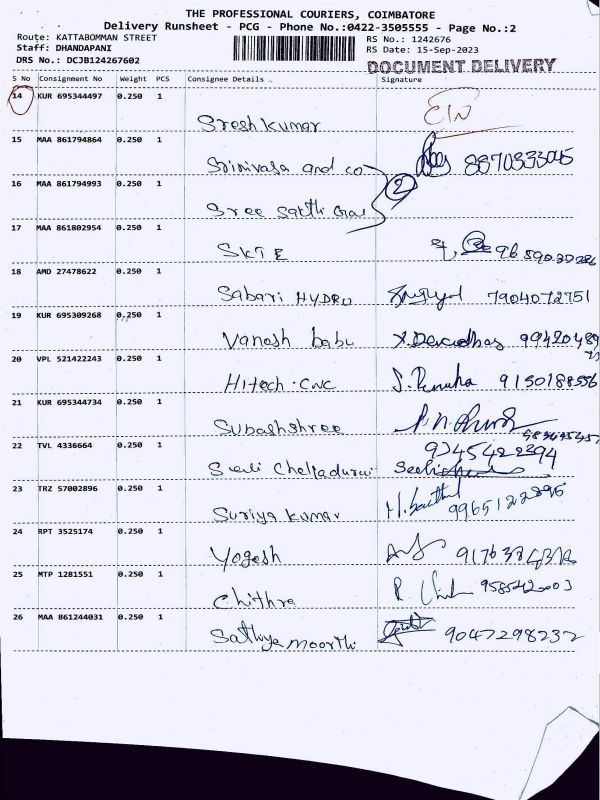 THE PROFESSIONAL COURIERS, COIMBATORE
Delivery Runsheet - PCG - Phone No.:0422-3505555 - Page No.:2
Route: KATTABOMMAN STREET RS No.: 1242676
Staff: DHANDAPANI RS Date: 15-Sep-2023
DRS No.: DCJB124267602 DOCUMENT DELIVERY
S No Consignment No Weight PCS Consignee Details Signature
14 KUR 695344497 0.250 1
Sresh Kumar
15 MAA 861794864 0.250 1
Srinivasa and co 8870333045
16 MAA 861794993 0.250 1 2
Sree Sakthi
17 MAA 861802954 0.250 1
SKTE
18 AMD 27478622 0.250 1
Sabari HYDRO 7904072751
19 KUR 695309268 0.250 1
Vanash babu
20 VPL 521422243 0.250 1
Hitech CNC 9150188556
21 KUR 695344734 0.250 1
Subashshree
22 TVL 4336664 0.250 1 9345422394
Chelladurai
23 TRZ 57002896 0.250 1
Suriya Kumar
24 RPT 3525174 0.250 1
Yogesh
25 MTP 1281551 0.250 1
Chithra
26 MAA 861244031 0.250 1
Sathiya moorthi 9047298232